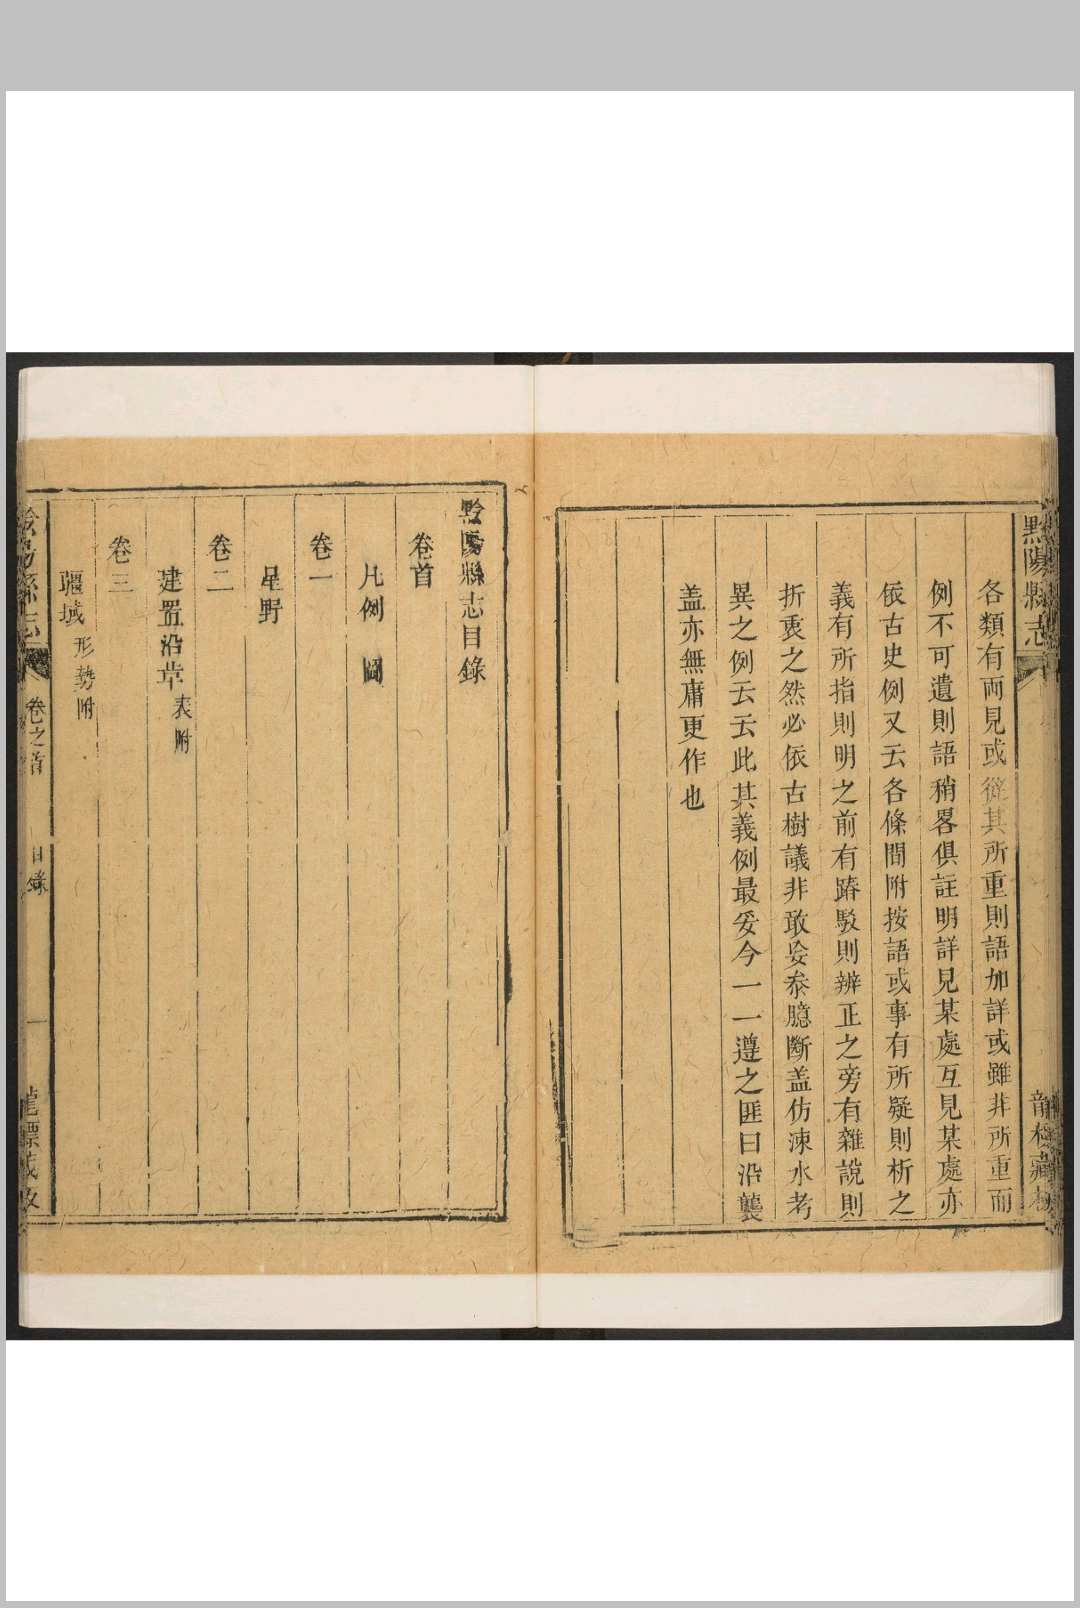 黔陽縣志
各類有両見或從其所重則語加詳或雖非所重而
例不可遺則語稍畧俱註明詳見某處互見某處亦
依古史例又云各條間附按語或事有所疑則析之
義有所指則明之前有踳駁則辨正之旁有雜說則
折衷之然必依古樹議非敢妄叅臆斷盖仿涑水考
異之例云云此其義例最妥今一一遵之匪曰沿襲
盖亦無庸更作也
黔陽縣志目錄
卷首
凡例 圖
卷一
星野
卷二
建置沿革 表附
卷三
疆域 形勢附
卷之首 目錄 一